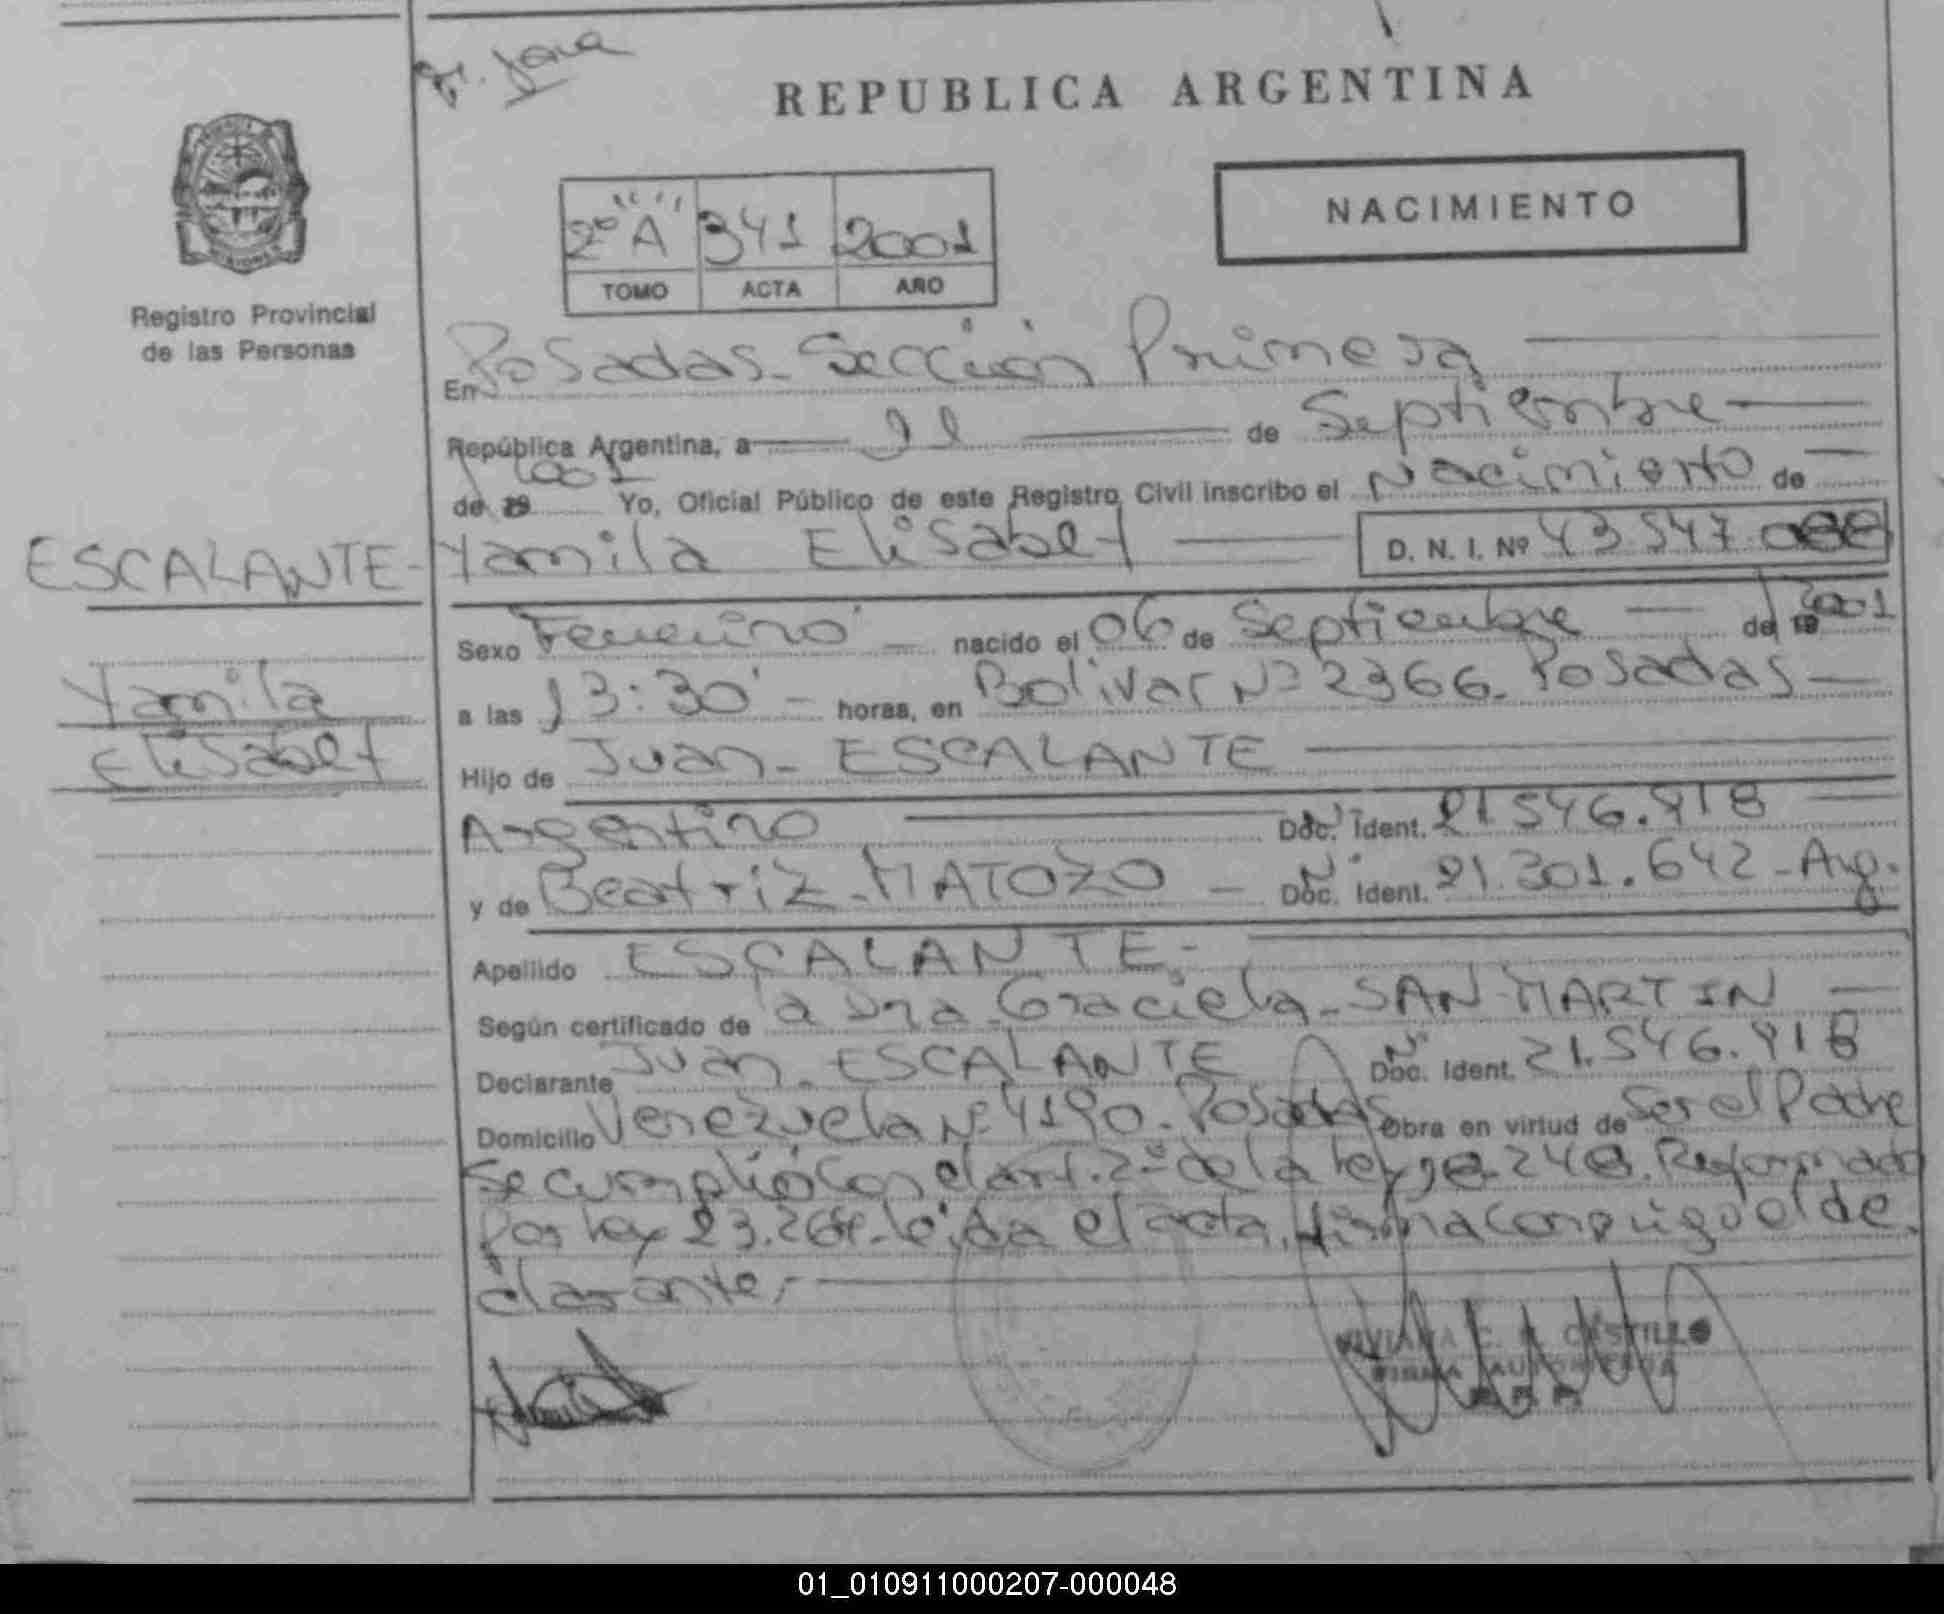 REPUBLICA ARGENTINA
2º "A" 341 2001
TOMO ACTA AÑO
NACIMIENTO
Registro Provincial
de las Personas
En Posadas - Sección Primera
República Argentina, a 11 de Septiembre
de 19 2001 Yo, Oficial Público de este Registro Civil inscribo el Nacimiento de
ESCALANTE - Yamila Elisabet D. N. I. Nº 43.547.
Yamila
Elisabet
Sexo Femenino nacido el 06 de Septiembre de 19 2001
a las 13:30 - horas, en Bolivar Nº 2366. Posadas
Hijo de Juan - ESCALANTE
Argentino Nº Doc. Ident. 21.546.918
y de Beatriz - MATOZO - Nº Doc. Ident. 21.301.642 - Arg.
Apellido ESCALANTE -
Según certificado de la Dra Graciela - SAN MARTIN
Declarante Juan - ESCALANTE Nº Doc. Ident. 21.546.918
Domicilio Venezuela Nº 4190 - Posadas Obra en virtud de Ser el Padre
Se cumplió con el art. 2º de la ley 18.248. Reformado
Por ley 23.264 - leida el acta, firma conmigo el de
clarante -
VIVIANA E. CASTILLO
FIRMA AUTORIZADA
R.P.P.
01_010911000207-000048